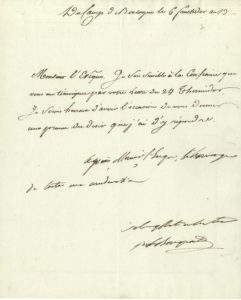 Du Camp de Boulogne le 6 fructidor an 13
Monsieur l'Evêque. Je suis sensible à la Confiance que
vous me témoignez par votre Lettre du 24 Thermidor
Je serai heureux d'avoir l'occasion de vous donner
une preuve du désir que j'ai d'y répondre.
Agréez Monsieur l'Evêque, le témoignage
de toute ma considération